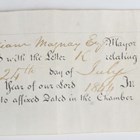 William Magnay Esq Mayor
d with the Letter K relating
24th day of July
Year of our Lord 1844 In
to affixed Dated in the Chamber